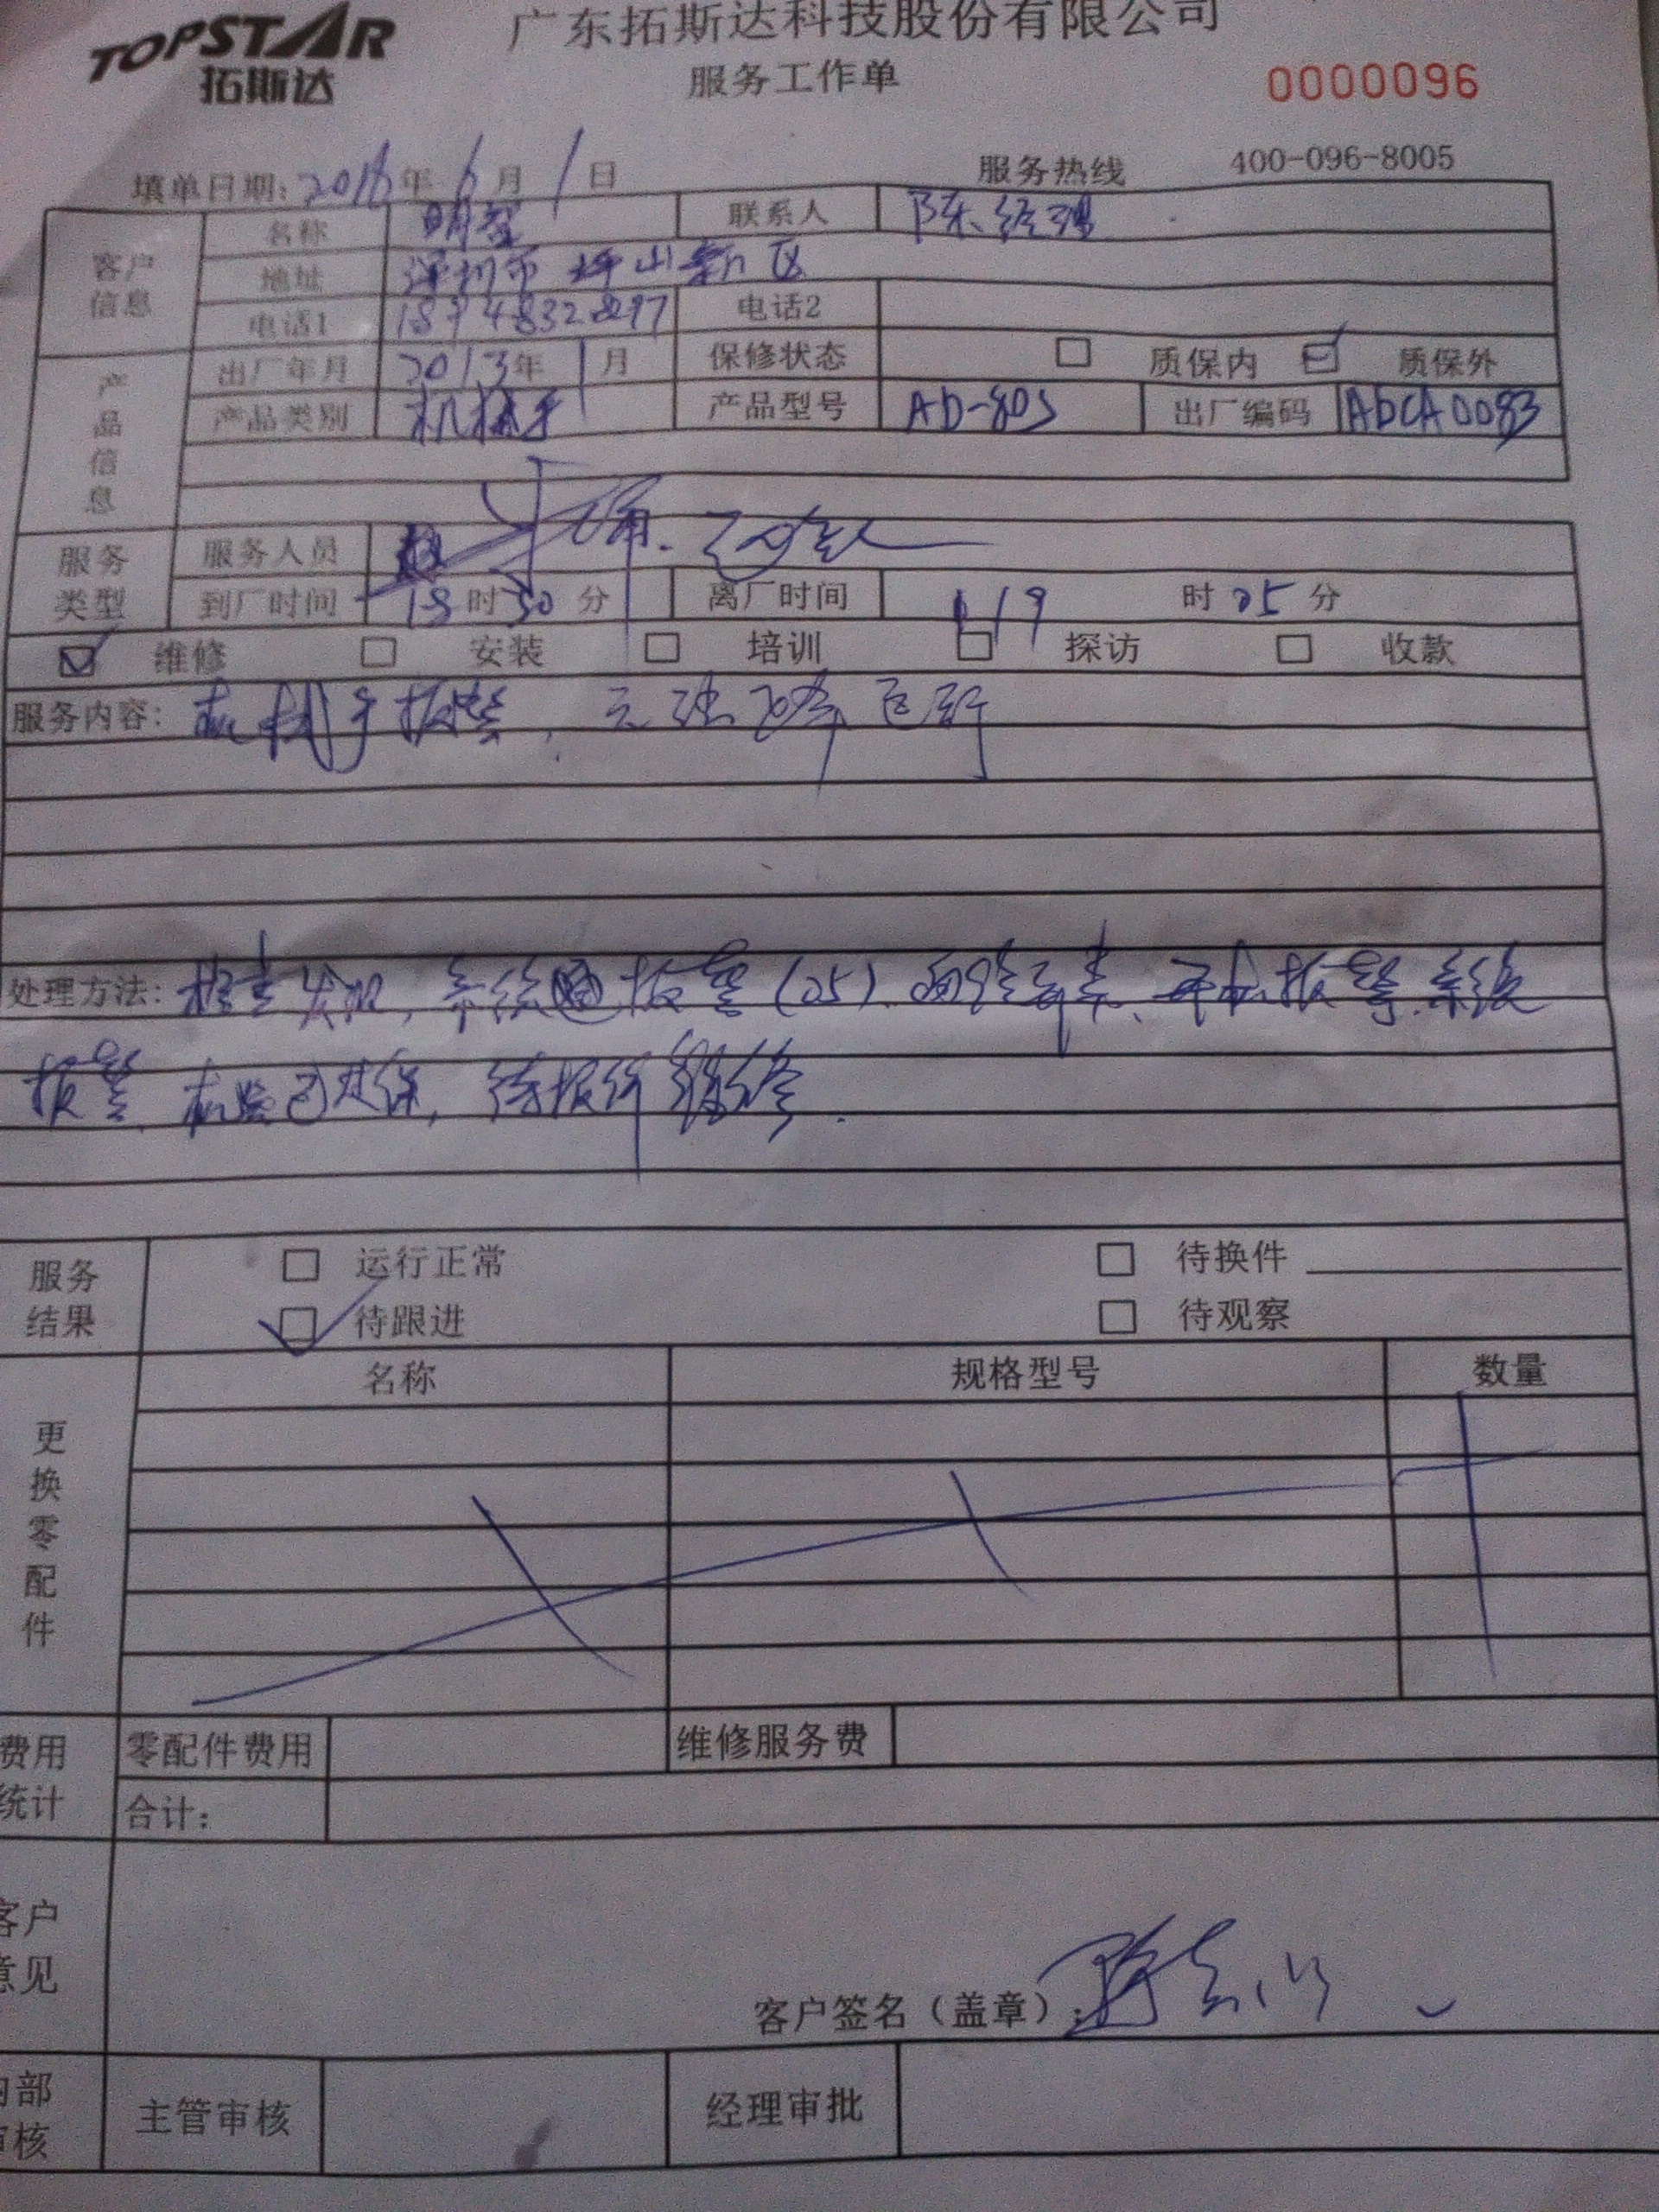 TOPSTAR
拓斯达
广东拓斯达科技股份有限公司
服务工作单
0000096
填单日期: 2016年 6月 1日
服务热线 400-096-8005
客户信息
名称 明智 联系人 陈经理
地址 深圳市坪山新区
电话1 电话2
产品信息
出厂年月 2013年 1月 保修状态 质保内 质保外
产品类别 机械手 产品型号 AD-80S 出厂编码 ADCA0083
服务类型
服务人员
到厂时间 18时30分 离厂时间 19时05分
维修 安装 培训 探访 收款
服务内容: 机械手报警,无法正常运行
处理方法: 检查发现,系统 报警(05). 报警.系统
报警 机器已过保,待报价维修.
服务结果
运行正常 待换件
待跟进 待观察
更换零配件
名称 规格型号 数量
费用统计
零配件费用 维修服务费
合计:
客户意见
客户签名(盖章):
内部审核
主管审核 经理审批